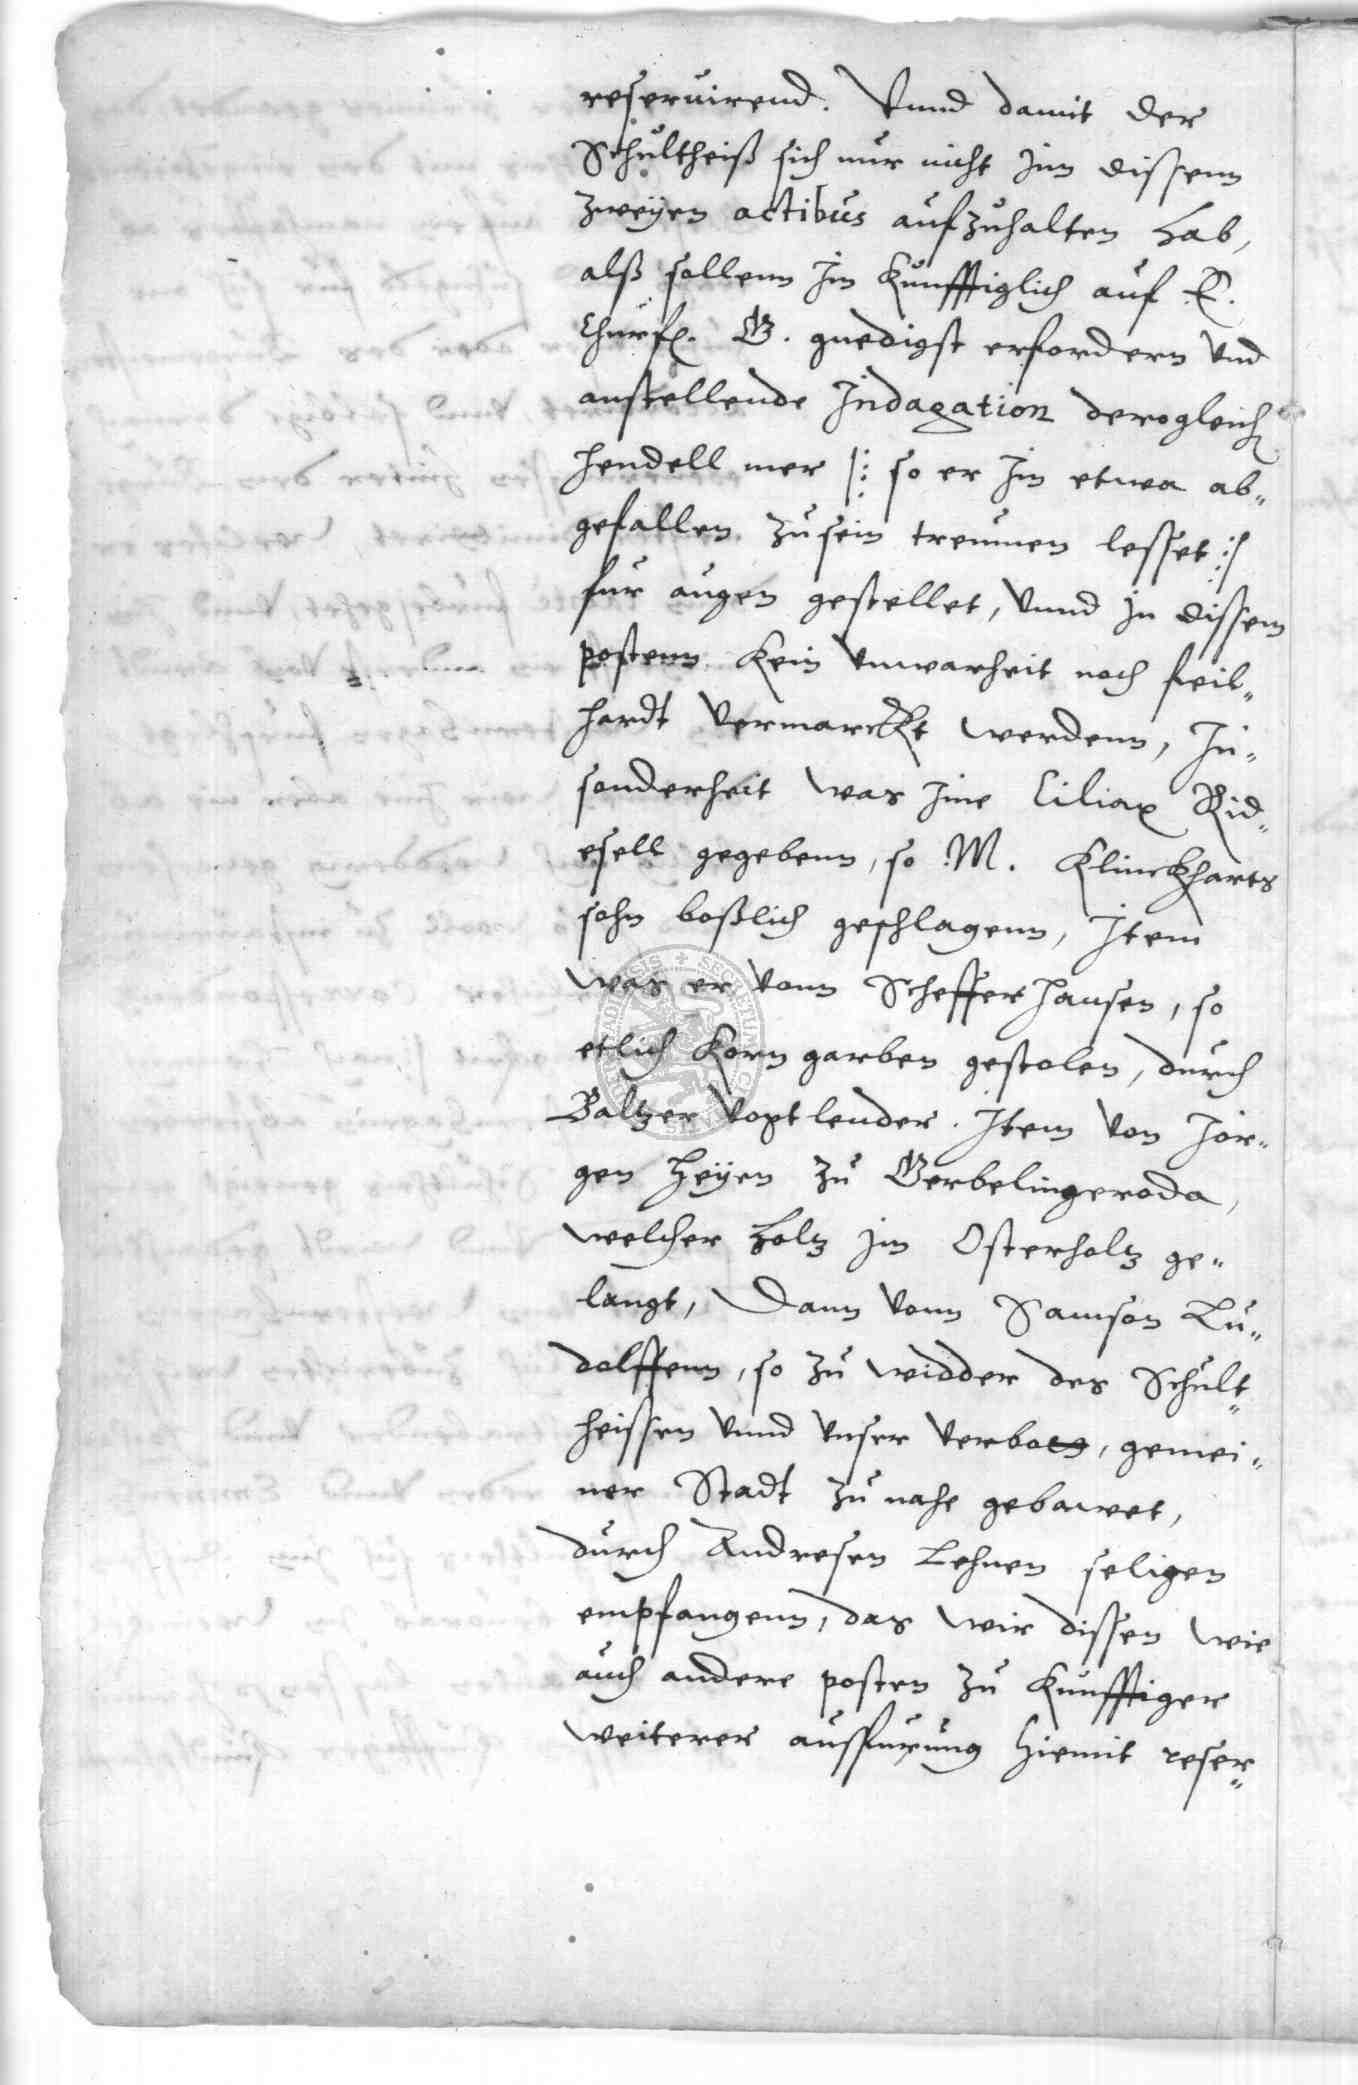 reseruirend. Vnnd damit der
Schultheiß sich nur nicht Jnn dissenn
zweyen actibus aufzuhalten hab,
alß sollenn Jm Kunfftiglich auf E.
Churf. G. gnedigst erfordern vnd
anstellende Jndagation derogleich
hendell mer |: so er Jm etwa ab-
gefallen zu sein treumen lesset :|
fur augen gestellet, Vnnd Jn dissem
postenn Kein vnwarheit noch feil-
hardt vermarckt werdenn, Jn-
sonderheit was Jme Ciliax Rid-
esell gegebenn, so M. Klinckharts
sohn boßlich geschlagenn, Jtem
was er vonn Scheffer Hansen, so
etlich Korn garben gestolen, durch
Baltzer Voptlender. Jtem von Jör-
gen Heyen zu Gerbelingeroda,
welcher holtz Jm Osterholtz ge-
langt, Dann vonn Samson Lu-
dolffenn, so zu widder des Schult-
heissen vnnd vnser verbott, gemei-
ner Stadt zu nahe gebawet,
durch Andresen Lehnen seligen
empfangenn, das wir dissen wie
auch andere posten zu Kunfftiger
weiterer ausfurung hiemit reser-